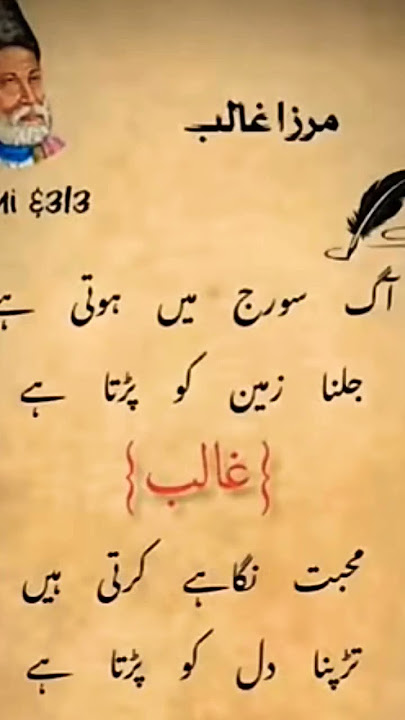 مرزا غالب
آگ سورج میں ہوتی ہے
جلنا زمین کو پڑتا ہے
{غالب}
محبت نگاہے کرتی ہیں
تڑپنا دل کو پڑتا ہے